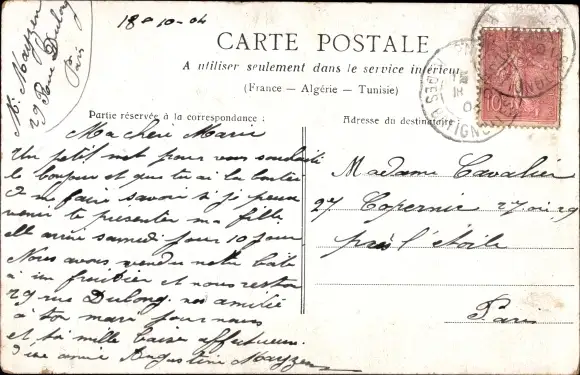 18-10-04
Mr Mayzen
29 Rue Dulong
Paris
CARTE POSTALE
A utiliser seulement dans le service intérieur
(France — Algérie — Tunisie)
Partie réservée à la correspondance :
Adresse du destinataire :
Ma chère Marie
Un petit mot pour vous souhaiter
le bonjour et que tu ai la bonté
de me faire savoir si je peux
venir te presenter ma fille
elle arrive samedi pour 10 jours
Nous avons vendu notre
à un fruitier et nous restons
29 rue Dulong nos amitié
à ton mari pour nous
et toi mille baise affectueux
d'une amie Augustine Mayzen
Madame Cavalier
27 Copernic 27 ou 29
près l'étoile
Paris
10